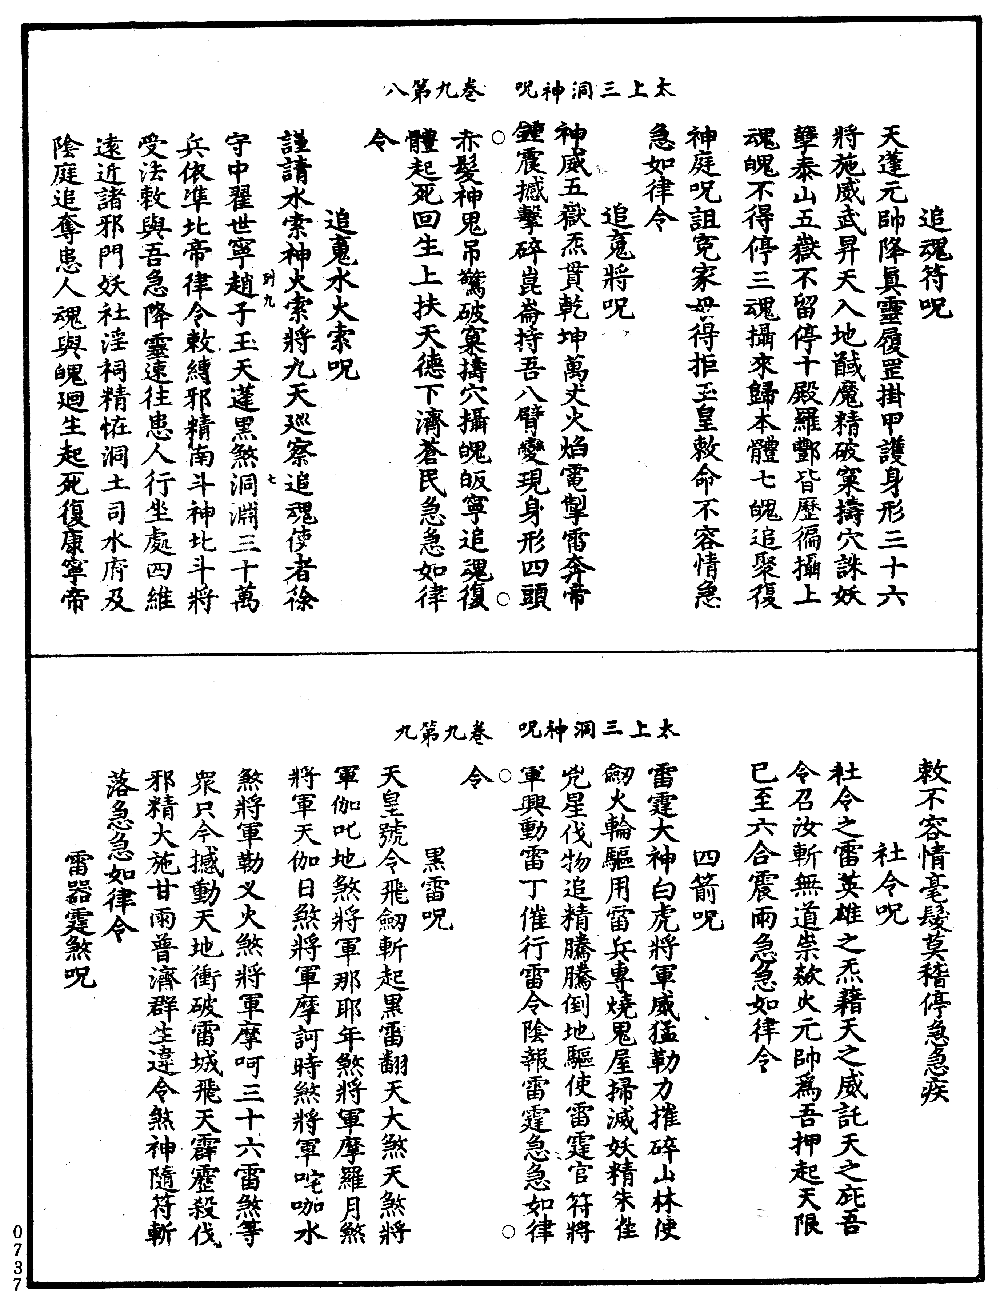 太上三洞神呪　卷九第八
追魂符呪
天蓬元帥降眞靈履罡掛甲護身形三十六
將施威武昇天入地馘魔精破窠擣穴誅妖
孽泰山五嶽不留停十殿羅酆皆歷徧攝上
魂魄不得停三魂攝來歸本體七魄追聚復
神庭呪詛冤家毋得拒玉皇敕命不容情急
急如律令
追䰟將呪
神威五嶽炁貫乾坤萬丈火焰電掣雷奔帝
鍾震撼擊碎崑崙持吾八臂變現身形四頭
赤髮神鬼吊驚破窠擣穴攝魄皈寧追魂復
體起死回生上扶天德下濟蒼民急急如律
令
追䰟水火索呪
謹請水索神火索將九天巡察追魂使者徐
守中翟世寧趙子玉天蓬黑煞洞淵三十萬
兵依準北帝律令敕縛邪精南斗神北斗將
受法敕與吾急降靈速往患人行坐處四維
遠近諸邪門妖社淫祠精恠洞土司水府及
陰庭追奪患人魂與魄迴生起死復康寧帝
太上三洞神呪　卷九第九
敕不容情毫髮莫稽停急急疾
社令呪
社令之雷英雄之炁藉天之威託天之庇吾
令召汝斬無道祟歘火元帥爲吾押起天限
已至六合震雨急急如律令
四箭呪
雷霆大神白虎將軍威猛勒力摧碎山林使
劒火輪驅用雷兵專燒鬼屋掃滅妖精朱雀
兇星伐物追精騰騰倒地驅使雷霆官符將
軍興動雷丁催行雷令陰報雷霆急急如律
令
黑雷呪
天皇號令飛劒斬起黑雷翻天大煞天煞將
軍伽吒地煞將軍那耶年煞將軍摩羅月煞
將軍天伽日煞將軍摩訶時煞將軍咤咖水
煞將軍勒叉火煞將軍摩呵三十六雷煞等
衆只今撼動天地衝破雷城飛天霹靂殺伐
邪精大施甘雨普濟群生違令煞神隨符斬
落急急如律令
雷器霆煞呪
0737